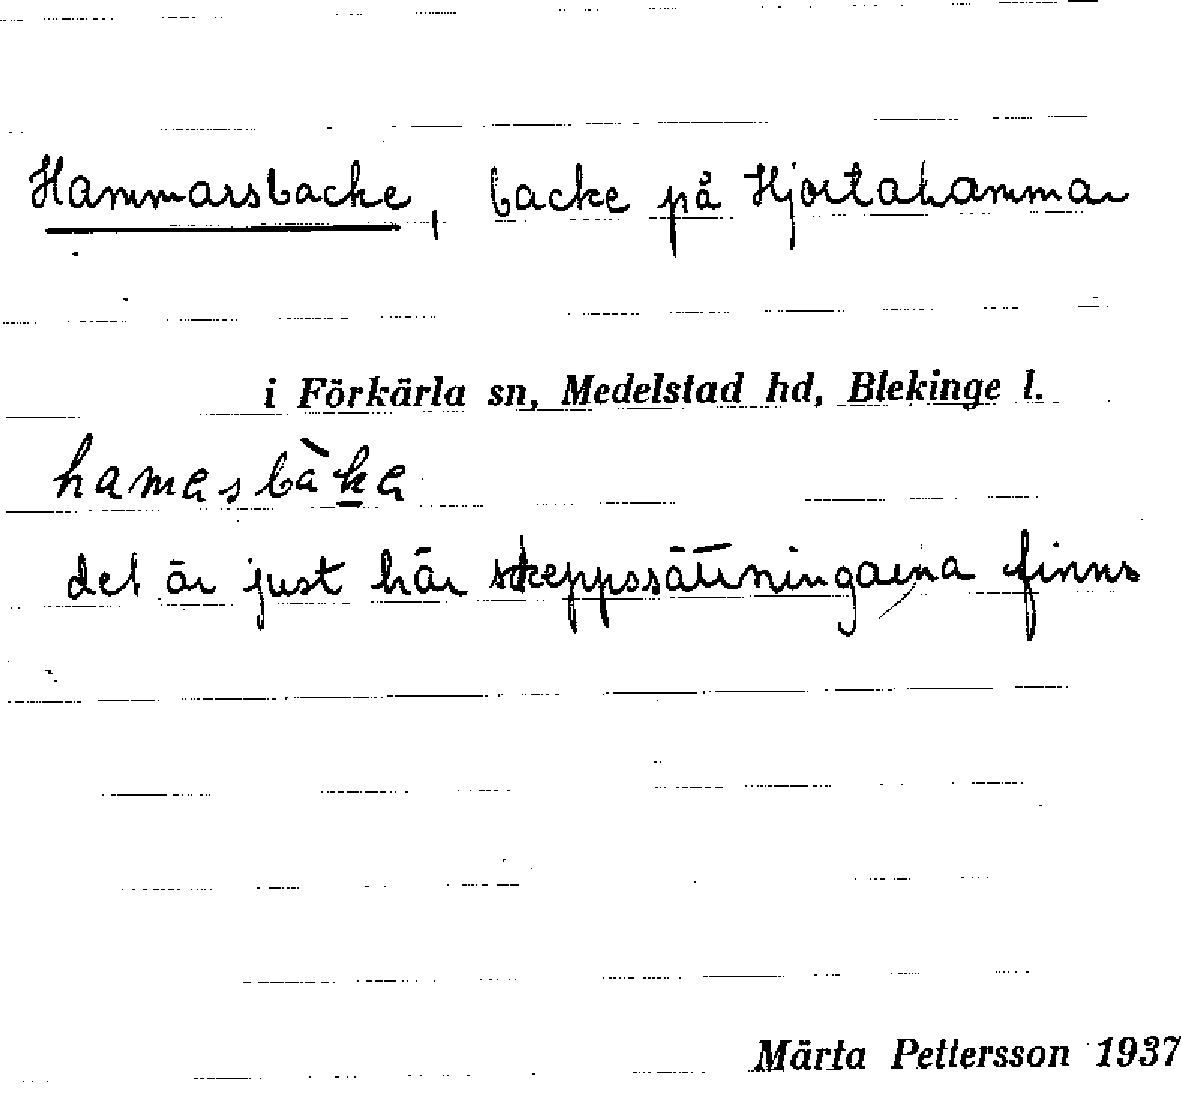 Hammarsbacke, backe på Hjortahammar
i Förkärla sn, Medelstad hd, Blekinge l.
hamasbàka
det är just här skeppssättningarna finns
Märta Pettersson 1937